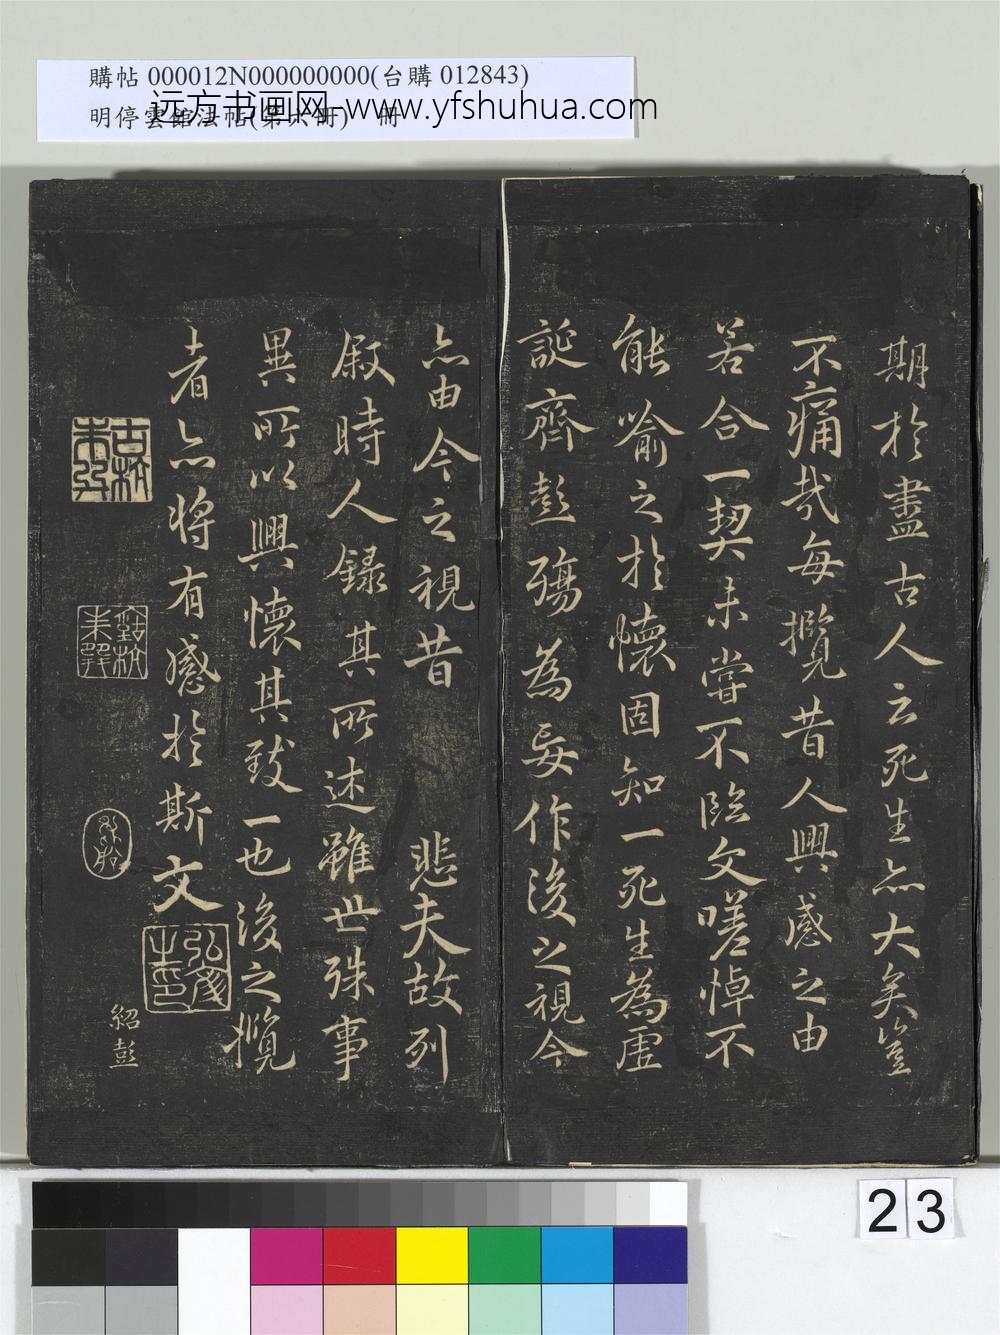 購帖 000012N000000000(台購 012843)
明停雲館法帖(第六冊) 冊
远方书画网-www.yfshuhua.com
期於盡古人云死生亦大矣豈
不痛哉每攬昔人興感之由
若合一契未嘗不臨文嗟悼不
能喻之於懷固知一死生為虛
誕齊彭殤為妄作後之視今
亦由今之視昔 悲夫故列
叙時人錄其所述雖世殊事
異所以興懷其致一也後之攬
者亦將有感於斯文
紹彭
23